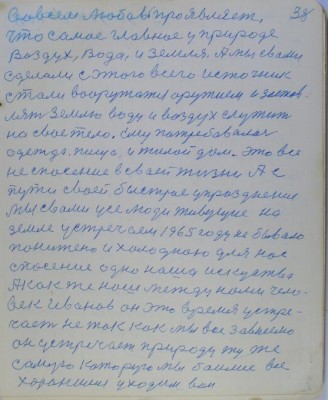 Совсем любовь проявляет, 38
что самое главное у природе
воздух, вода, и земля. А мы с вами
сделали с этого всего источник
стали вооружати оружием и застав-
лят землю воду и воздух служит
на свое тело. Ему потребовалас
одежда, пища, и жилой дом. Это все
не спасение в своей жизни А с
пути своей быстрое упразднения
мы с вами усе люди живущие на
земле устречаем 1965 году не бывало
понижено и холодною для нас
спасение одно наша искуства
А как же наш между нами чело-
век Иванов он это время устре-
чает не так как мы все зависимо
он устречает природу ту же
самую которую мы баимся все
хоранимся уходим вон